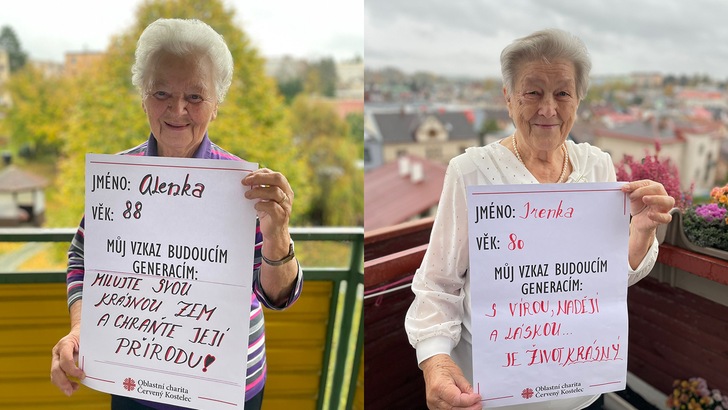 JMÉNO: Alenka
VĚK: 88
MŮJ VZKAZ BUDOUCÍM
GENERACÍM:
MILUJTE SVOU
KRÁSNOU ZEM
A CHRAŇTE JEJÍ
PŘÍRODU!
Oblastní charita
Červený Kostelec
JMÉNO: Irenka
VĚK: 80
MŮJ VZKAZ BUDOUCÍM
GENERACÍM:
S VÍROU, NADĚJÍ
A LÁSKOU...
JE ŽIVOT KRÁSNÝ
Oblastní charita
Červený Kostelec